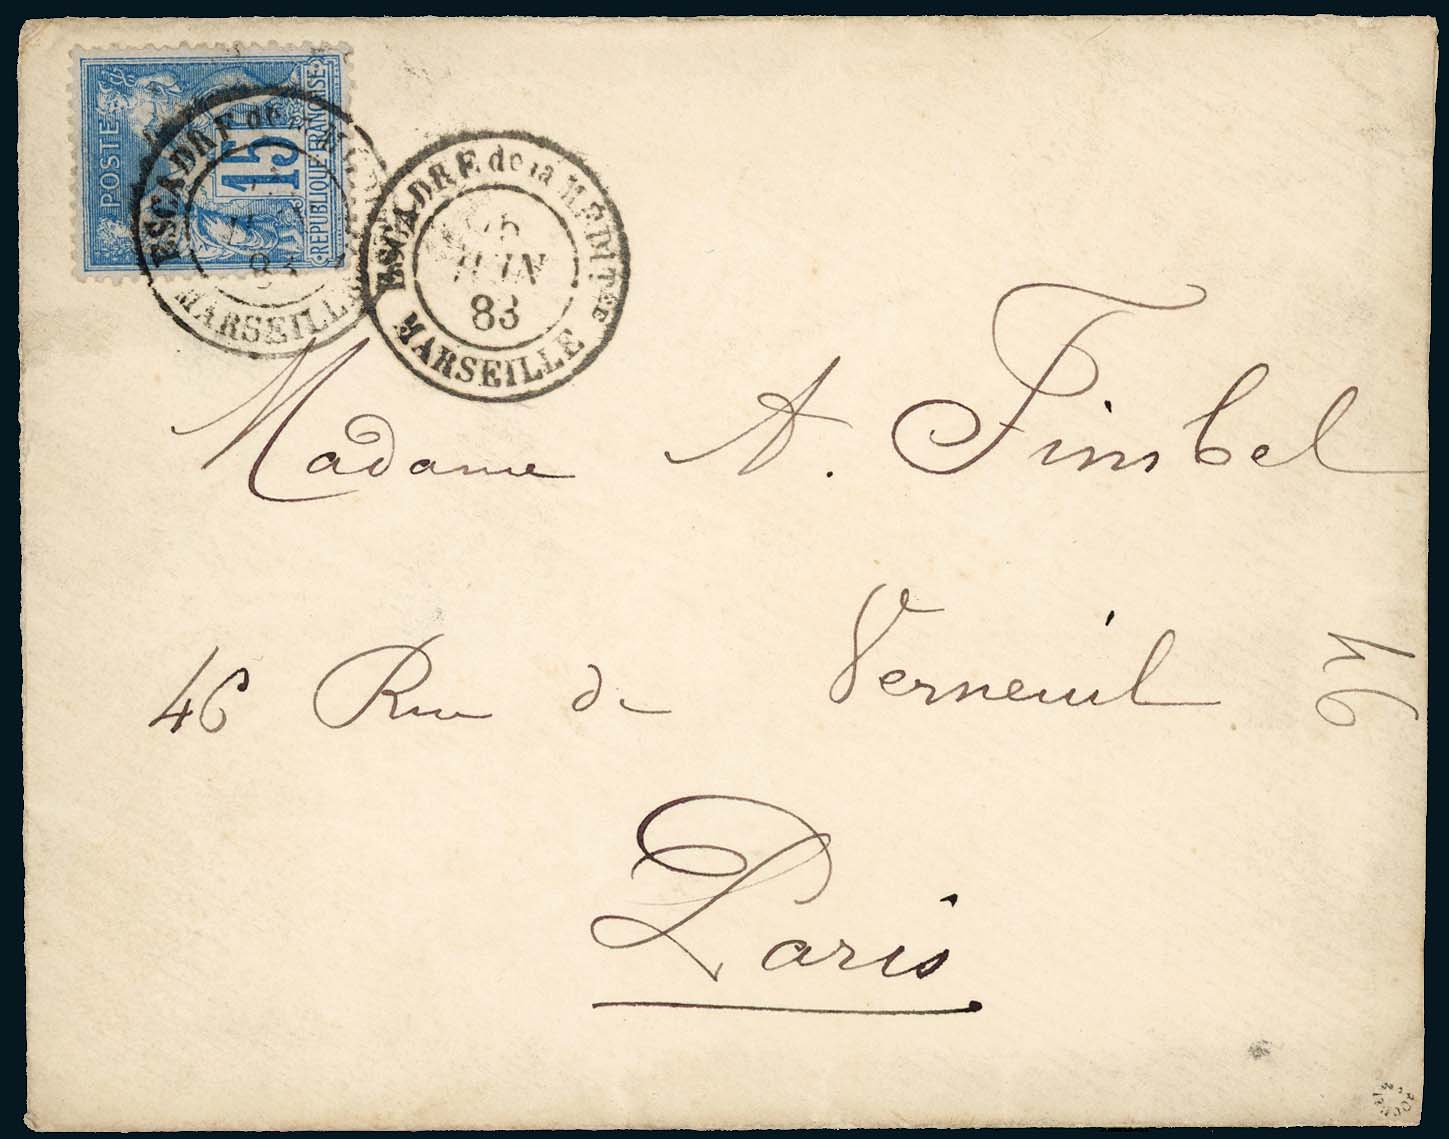 POSTE
15
REPUBLIQUE FRANÇAISE
ESCADRE de la
MARSEILLE
83
ESCADRE de la MÉDITée
JUIN
83
MARSEILLE
Madame A. Fimbel
46 Rue de Verneuil
Paris